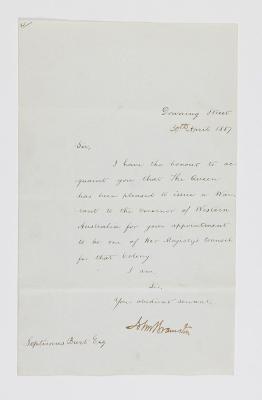 Downing Street
30th April 1887
Sir,
I have the honour to ac
quaint you that The Queen
has been pleased to issue a War
rant to the Governor of Western
Australia for your appointment
to be one of Her Majesty's Counsel
for that Colony
I am
Sir,
Your obedient servant,
John Bramston
Septimus Burt Esq